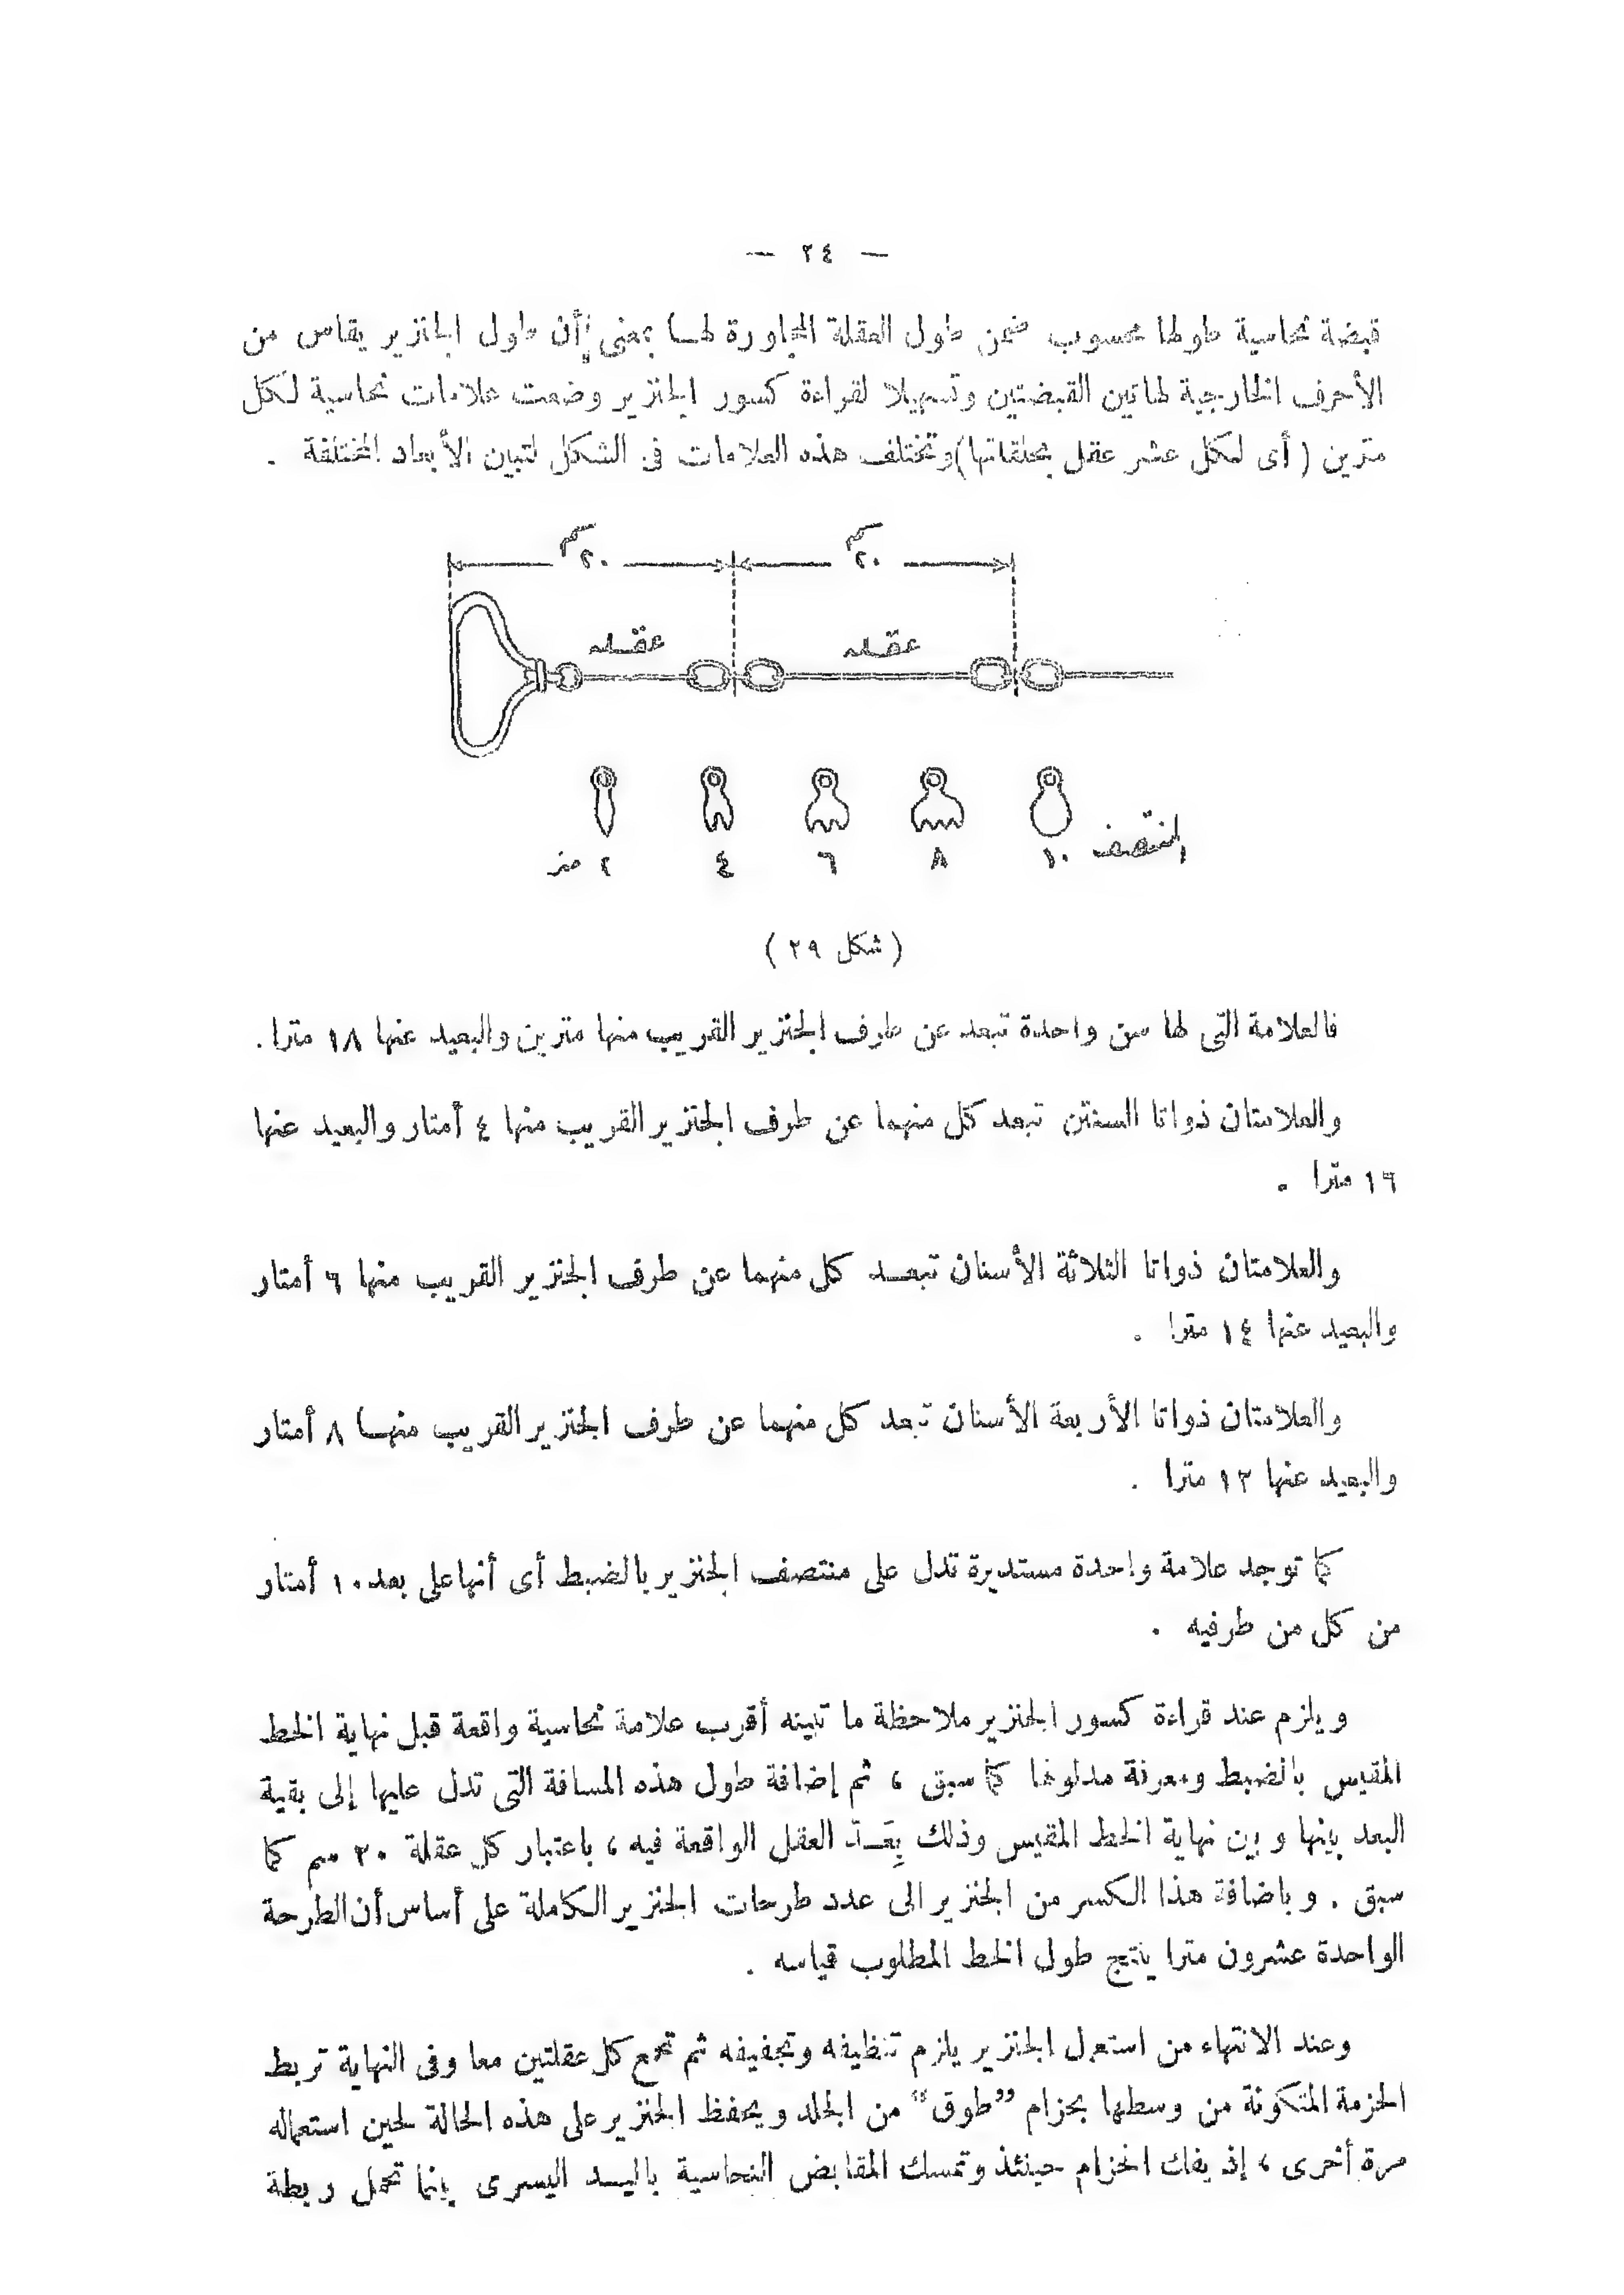 — ٢٤ —
قبضة نحاسية طولها محسوب ضمن طول العقلة المجاورة لها بمعنى أن طول الجنزير يقاس من
الأحرف الخارجية لهاتين القبضتين وتسهيلا لقراءة كسور الجنزير وضعت علامات نحاسية لكل
مترين ( أى لكل عشر عقل بحلقاتها ) وتختلف هذه العلامات فى الشكل لتبين الأبعاد المختلفة .
٢٠ سم ٢٠ سم
عقله عقله
٢ متر ٤ ٦ ٨ ١٠ المنتصف
( شكل ٢٩ )
فالعلامة التى لها سن واحدة تبعد عن طرف الجنزير القريب منها مترين والبعيد عنها ١٨ مترا .
والعلامتان ذواتا السنتن تبعد كل منهما عن طرف الجنزير القريب منها ٤ أمتار والبعيد عنها
١٦ مترا .
والعلامتان ذواتا الثلاثة الأسنان تبعد كل منهما عن طرف الجنزير القريب منها ٦ أمتار
والبعيد عنها ١٤ مترا .
والعلامتان ذواتا الأربعة الأسنان تبعد كل منهما عن طرف الجنزير القريب منها ٨ أمتار
والبعيد عنها ١٢ مترا .
كما توجد علامة واحدة مستديرة تدل على منتصف الجنزير بالضبط أى أنها على بعد ١٠ أمتار
من كل من طرفيه .
ويلزم عند قراءة كسور الجنزير ملاحظة ما تبينه أقرب علامة نحاسية واقعة قبل نهاية الخط
المقيس بالضبط ومعرفة مدلولها كما سبق ، ثم إضافة طول هذه المسافة التى تدل عليها إلى بقية
البعد بينها وبين نهاية الخط المقيس وذلك بِعَدّ العقل الواقعة فيه ، باعتبار كل عقلة ٢٠ سم كما
سبق . وباضافة هذا الكسر من الجنزير الى عدد طرحات الجنزير الكاملة على أساس أن الطرحة
الواحدة عشرون مترا ينتج طول الخط المطلوب قياسه .
وعند الانتهاء من استعمال الجنزير يلزم تنظيفه وتجفيفه ثم تجمع كل عقلتين معا وفى النهاية تربط
الحزمة المتكونة من وسطها بحزام ”طوق“ من الجلد ويحفظ الجنزير على هذه الحالة لحين استعماله
مرة أخرى ، إذ يفك الحزام حينئذ وتمسك المقابض النحاسية باليد اليسرى بينما تحمل ربطة